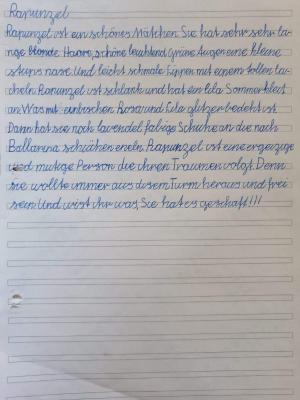 Rapunzel
Rapunzel ist ein schönes Mätchen. Sie hat sehr sehr la-
nge blonde Haare, schöne leuchtend Grüne Augen eine kleine
stups nase. Und leicht schmale Lippen mit einem tollen lä-
cheln. Rapunzel ist schlank und hat ein lila Sommerkleid
an. Was mit Rosa und Lila glitzer bedekt ist.
Dann hat sie noch lavendel fabige Schuhe an die nach
Ballarina schuhen eneln. Rapunzel ist eine ergeizige
und mutige Person die ihren Träumen volgt. Denn
sie wollte immer aus disem Turm heraus und frei
sein. Und wist ihr was, Sie hat es geschaft!!!